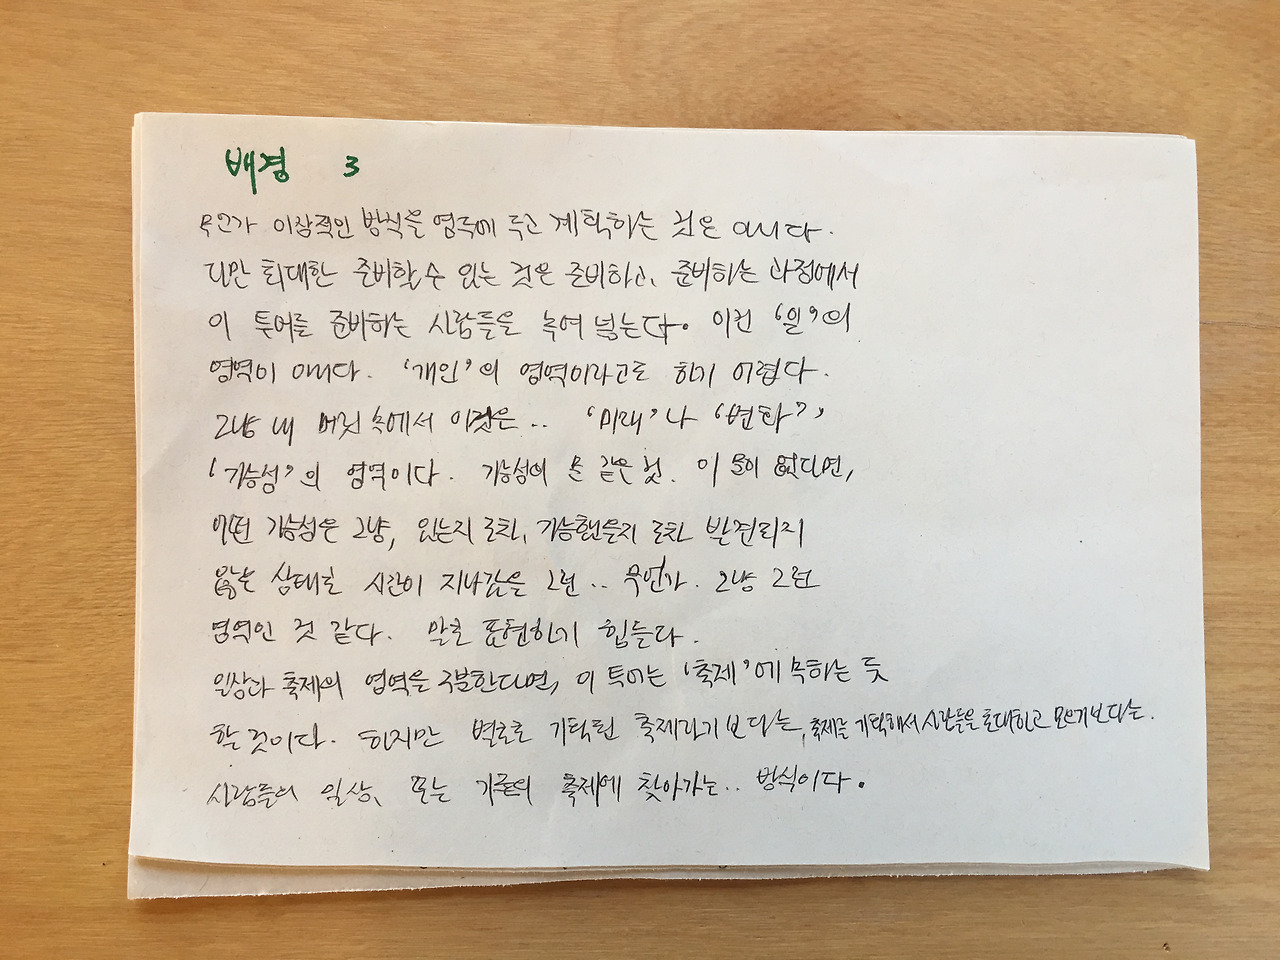 배경 3
무언가 이상적인 방식을 염두에 두고 계획하는 것은 아니다.
다만 최대한 준비할 수 있는 것은 준비하고, 준비하는 과정에서
이 투어를 준비하는 사람들을 녹여 넣는다. 이건 '일'의
영역이 아니다. '개인'의 영역이라고도 하기 어렵다.
그냥 내 머릿 속에서 이것은.. '미래'나 '변화?'
'가능성'의 영역이다. 가능성의 문 같은 것. 이 문이 없다면,
어떤 가능성은 그냥, 있는지 조차, 가능했을지 조차 발견되지
않는 상태로 시간이 지나갔을 그런.. 무언가. 그냥 그런
영역인 것 같다. 말로 표현하기 힘들다.
일상과 축제의 영역을 구분한다면, 이 투어는 '축제'에 속하는 듯
할 것이다. 하지만 별도로 기획된 축제라기 보다는, 축제를 기획해서 사람들을 초대하고 모으기보다는.
사람들의 일상, 또는 기존의 축제에 찾아가는.. 방식이다.